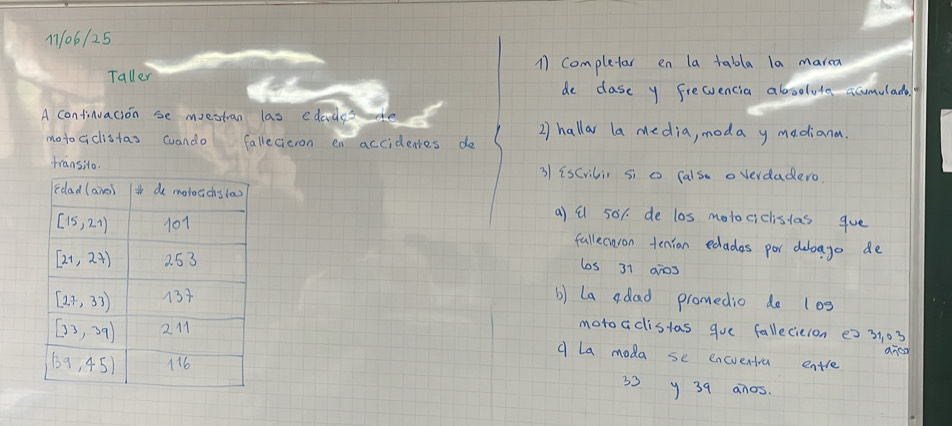 11/06/25
Taller
A continuación se muestran las edades de
motociclistas cuando fallecieron en accidentes de
tránsito.
Edad (años) # de motociclistas
[15, 21) 101
[21, 27) 253
[27, 33) 137
[33, 39) 211
[39, 45) 116
1) Completar en la tabla la marca
de clase y frecuencia absoluta acumulada.
2) hallar la media, moda y mediana.
3) Escribir si o falso o verdadero.
a) El 50% de los motociclistas que
fallecieron tenían edades por debajo de
los 31 años
b) La edad promedio de los
motociclistas que fallecieron es 31,03
años
c) La moda se encuentra entre
33 y 39 años.